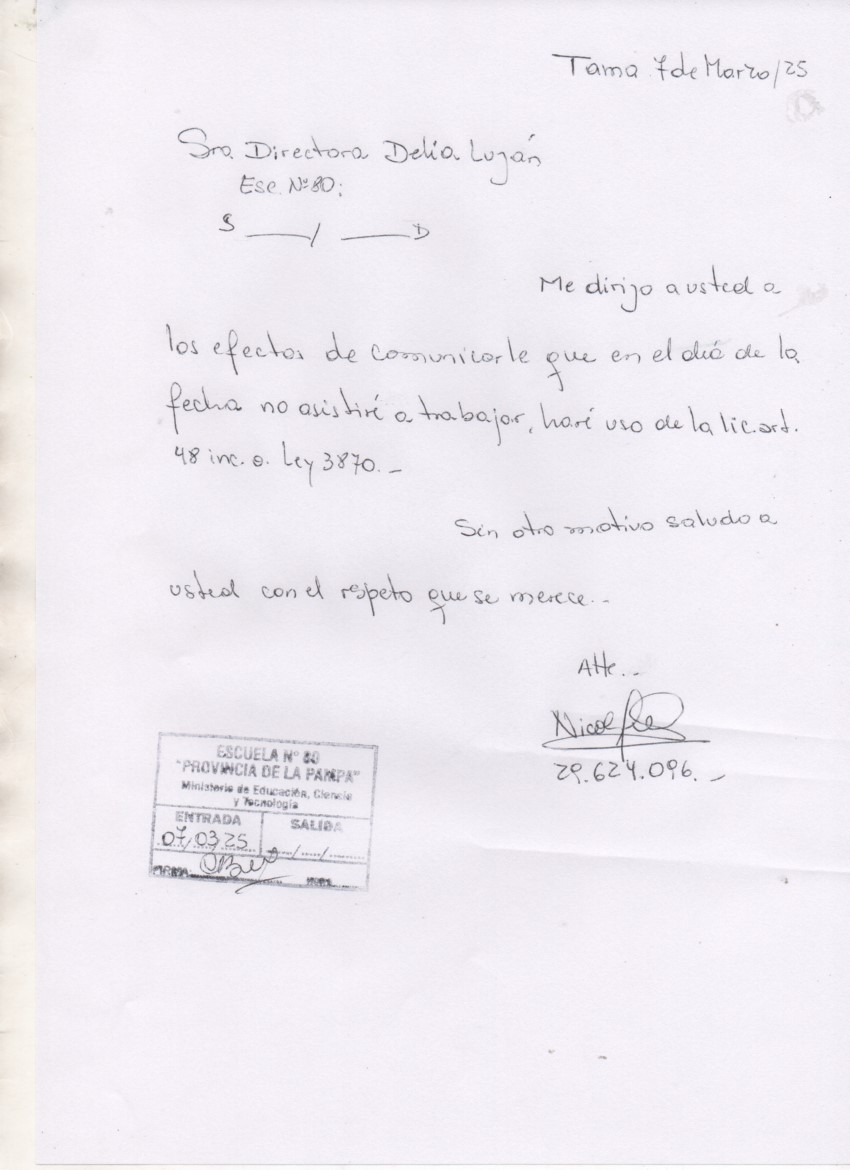 Tama 7 de Marzo/25
Sra Directora Delia Luján
Esc. Nº 80:
S ___/ ___D
Me dirijo a usted a
los efectos de comunicarle que en el diá de la
fecha no asistiré a trabajar, haré uso de la lic. art.
48 inc. a. Ley 3870.-
Sin otro motivo saludo a
usted con el respeto que se merece..-
Atte..-
Nicol
29.624.096.-
ESCUELA Nº 80
"PROVINCIA DE LA PAMPA"
Ministerio de Educación, Ciencia
y Tecnología
ENTRADA SALIDA
07/03/25 ....../....../......
FIRMA: HORA